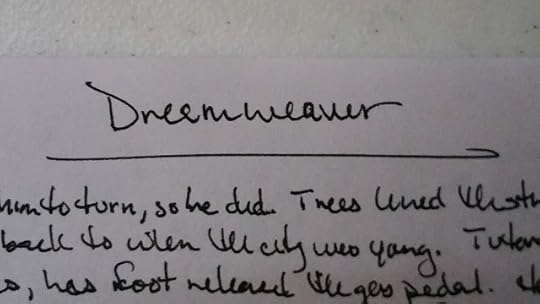 Dreamweaver
him to turn, so he did. Trees lined the
back to when the city was young.
his foot released the gas pedal.